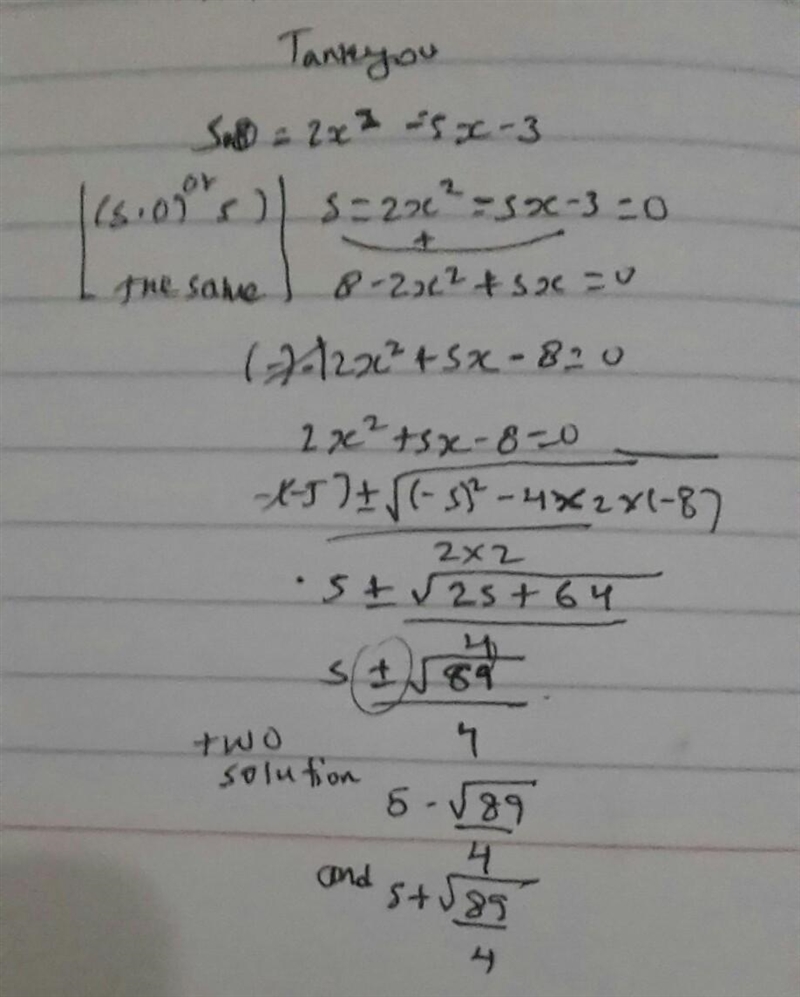 Tankyou
5.0 = 2x² = 5x - 3
(5.0) or 5) 5 = 2x² = 5x - 3 = 0
+
the same 8 - 2x² + 5x = 0
2x² + 5x - 8 = 0
2x² + 5x - 8 = 0
-(-5) ± √(-5)² - 4 x 2 x (-8)
2 x 2
5 ± √25 + 64
4
5 ± √89
4
two
solution
5 - √89
4
and 5 + √89
4